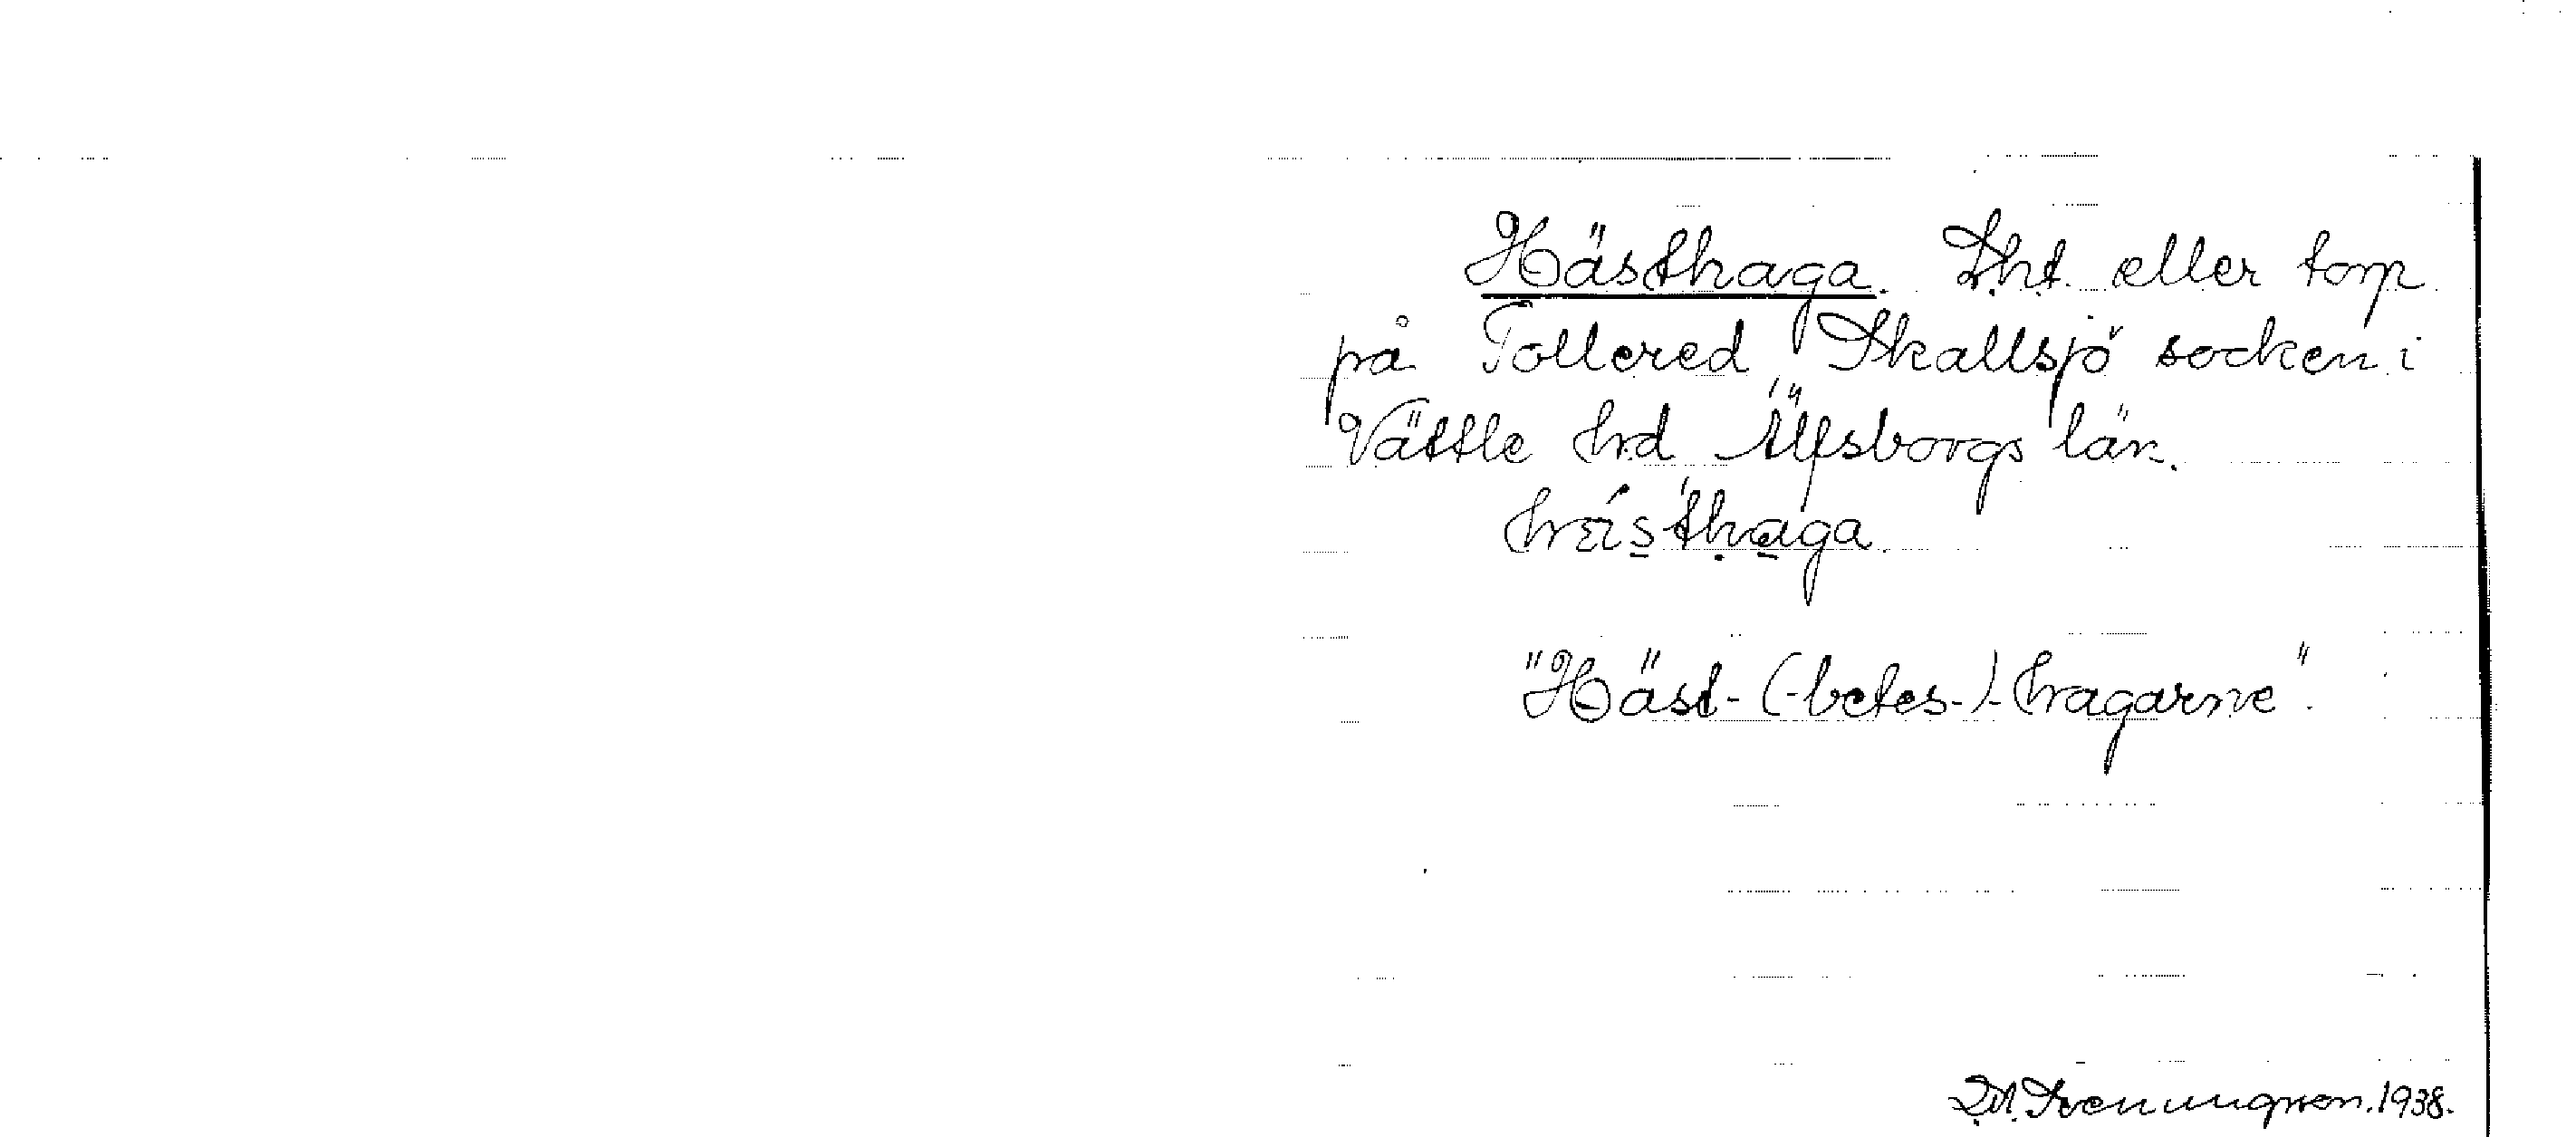 Hästhaga. Lht. eller torp
på Tollered Skallsjö socken i
Vättle hrd Älfsborgs län.
hæ̀sthaga.
"Häst-(-betes-)-hagarne".
1938.